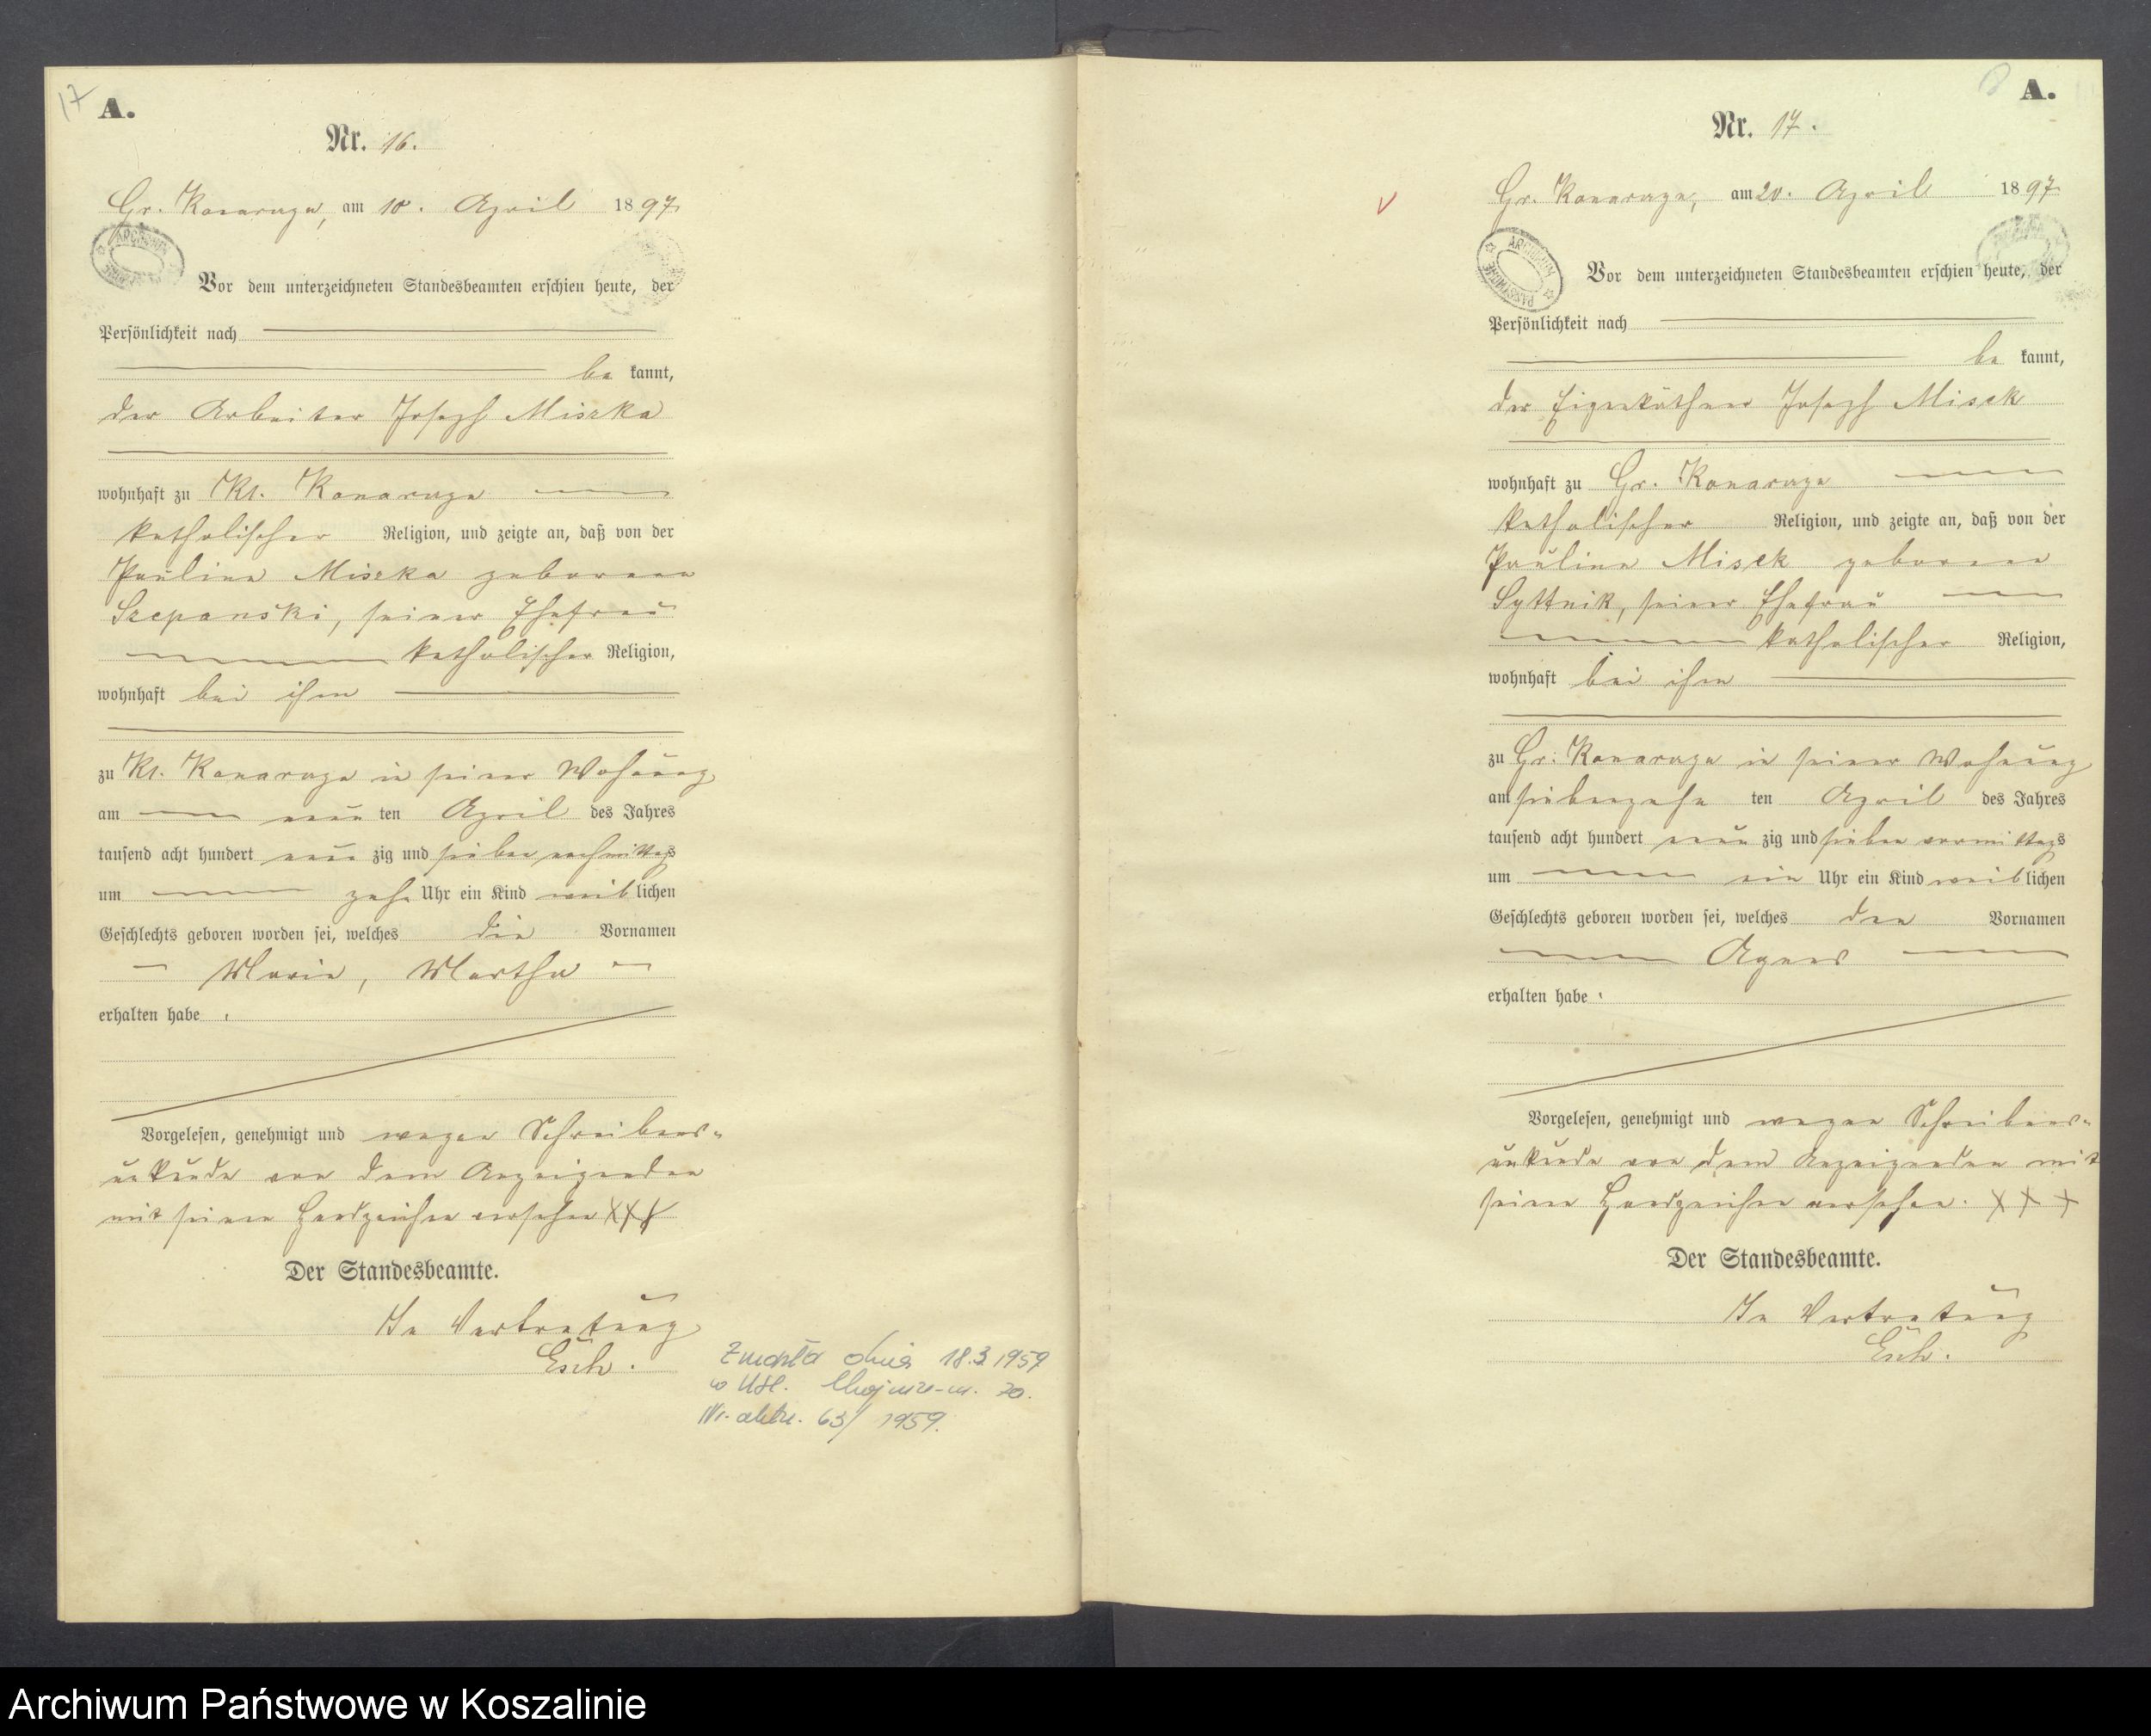 17
A.
Nr. 16.
Gr. Konarzyn, am 10. April 1897
Vor dem unterzeichneten Standesbeamten erschien heute, der
Persönlichkeit nach
be kannt,
der Arbeiter Joseph Miszka
wohnhaft zu Kl. Konarzyn
katholischer Religion, und zeigte an, daß von der
Pauline Miszka geborenen
Szepanski, seiner Ehefrau
katholischer Religion,
wohnhaft bei ihm
zu Kl. Konarzyn in seiner Wohnung
am neun ten April des Jahres
tausend acht hundert neun zig und sieben nachmittags
um zehn Uhr ein Kind weiblichen
Geschlechts geboren worden sei, welches die Vornamen
Marie, Martha
erhalten habe.
Vorgelesen, genehmigt und wegen Schreibens-
unkunde von dem Anzeigenden
mit seinen Handzeichen versehen XXX
Der Standesbeamte.
In Vertretung
Esch.
Zmarła dnia 18.3.1959
w USC. Chojnice-m. 20.
Nr. aktu. 63/1959.
A.
Nr. 17.
Gr. Konarzyn, am 20. April 1897
Vor dem unterzeichneten Standesbeamten erschien heute, der
Persönlichkeit nach
be kannt,
der Eigenkäthner Joseph Misek
wohnhaft zu Gr. Konarzyn
katholischer Religion, und zeigte an, daß von der
Pauline Misek geborenen
Syttnik, seiner Ehefrau
katholischer Religion,
wohnhaft bei ihm
zu Gr. Konarzyn in seiner Wohnung
am siebenzehn ten April des Jahres
tausend acht hundert neun zig und sieben vormittags
um ein Uhr ein Kind weiblichen
Geschlechts geboren worden sei, welches den Vornamen
Agnes
erhalten habe.
Vorgelesen, genehmigt und wegen Schreibens-
unkunde von dem Anzeigenden mit
seinen Handzeichen versehen. X X X
Der Standesbeamte.
In Vertretung
Esch.
Archiwum Państwowe w Koszalinie